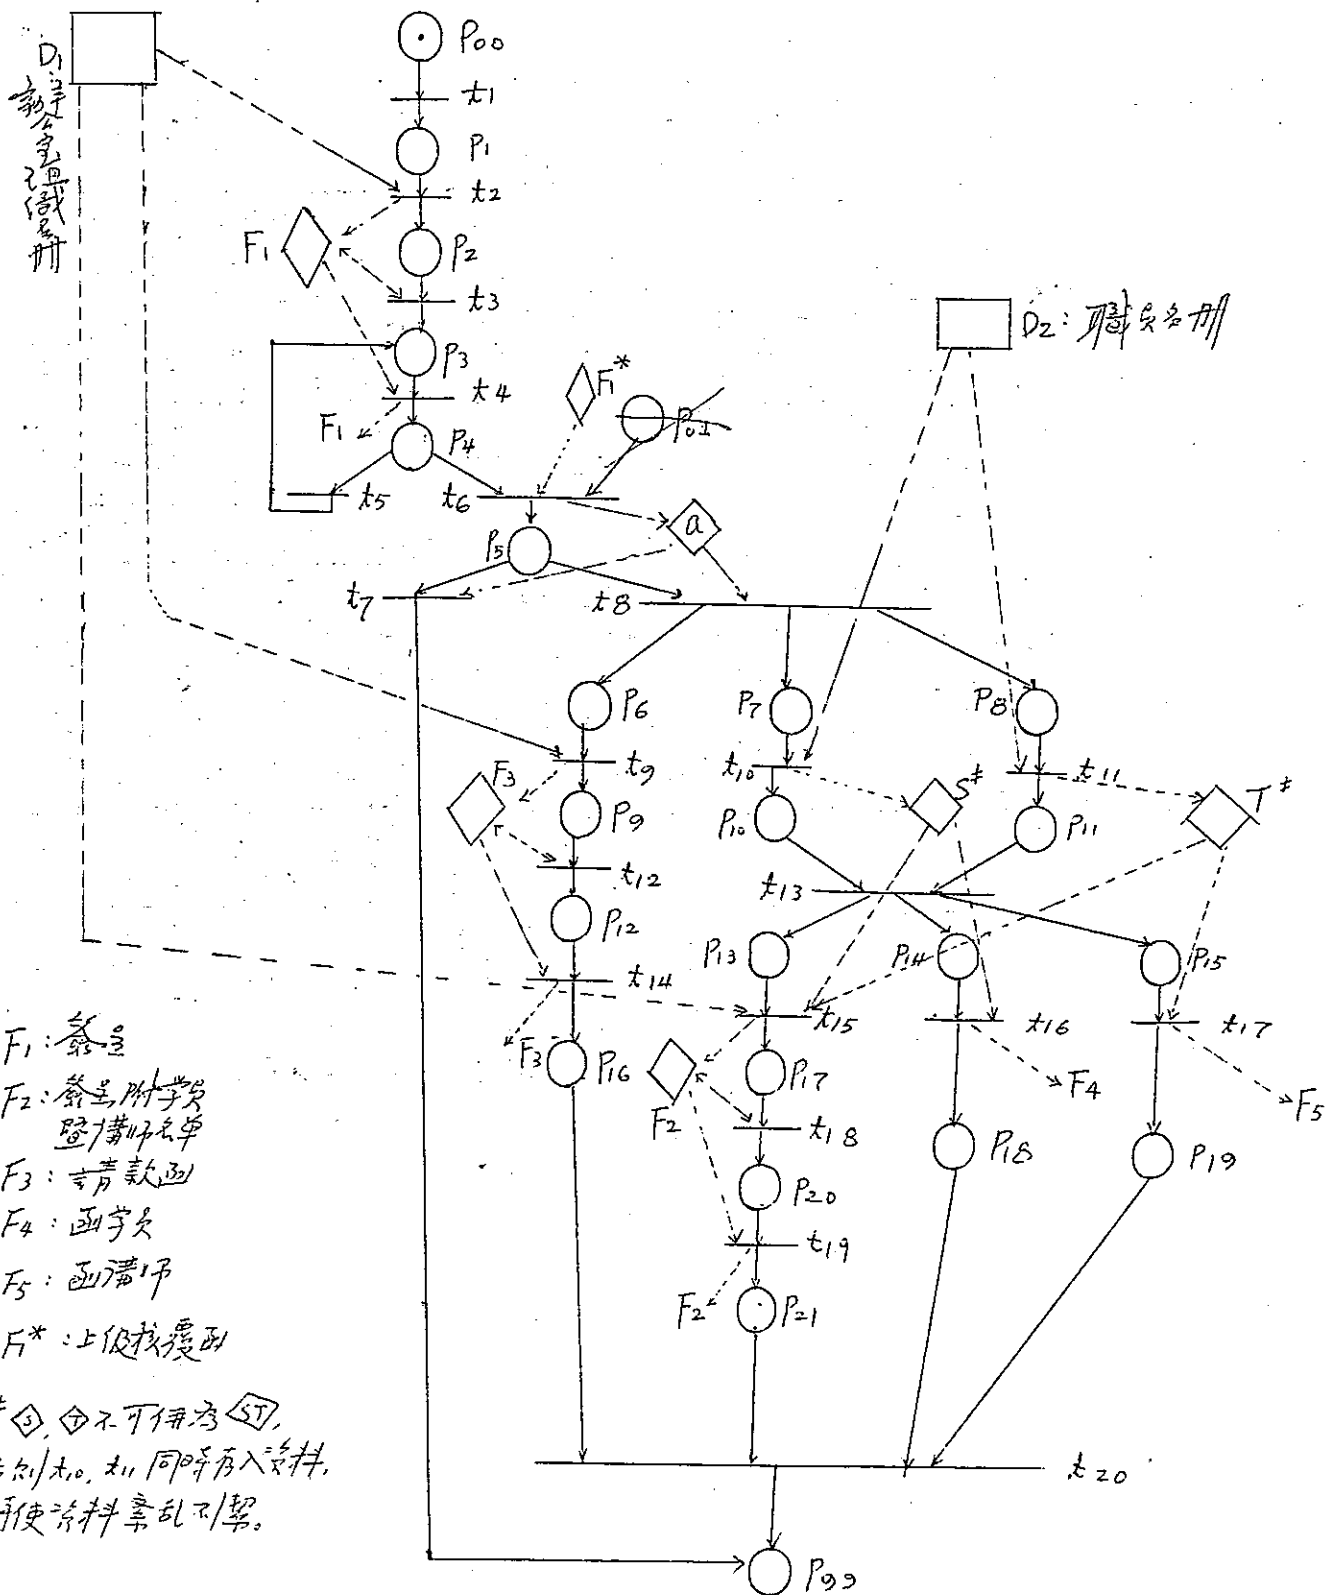 P00
t1
P1
t2
F1
P2
t3
D2: 職員名册
P3
t4
F1*
F1
P4
P01
t5
t6
a
P5
t7
t8
P6
P7
P8
t9
t10
t11
F3
S#
T#
P9
P10
P11
t12
t13
P12
P13
P14
P15
t14
t15
t16
t17
F3
P16
F2
P17
F4
F5
t18
P18
P19
P20
t19
F2
P21
t20
P99
D1:
F1: 簽呈
F2: 簽呈附学員
暨講师名单
F3: 請款函
F4: 函学員
F5: 函講师
F1*: 上级核覆函
S, T 不可併為 ST,
否則 t10, t11 同時存入资料,
使资料紊乱不